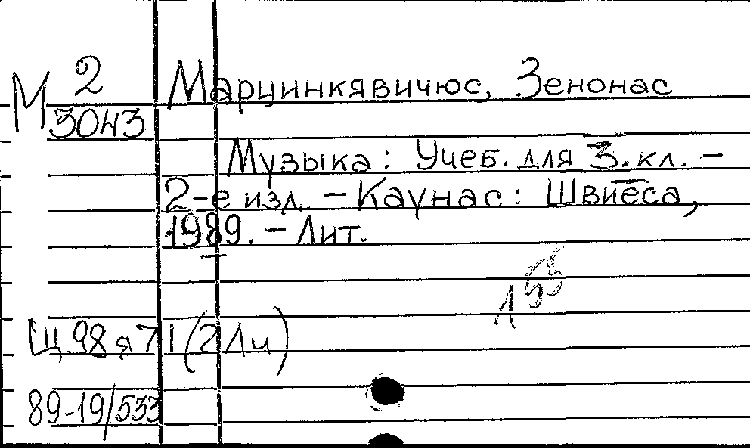 М 2
3043
Марцинкявичюс, Зенонас
Музыка : Учеб. для 3. кл. –
2-е изд. – Каунас : Швиеса,
1989. – Лит.
Щ 98 я 71 (2 Ли)
89-19/533